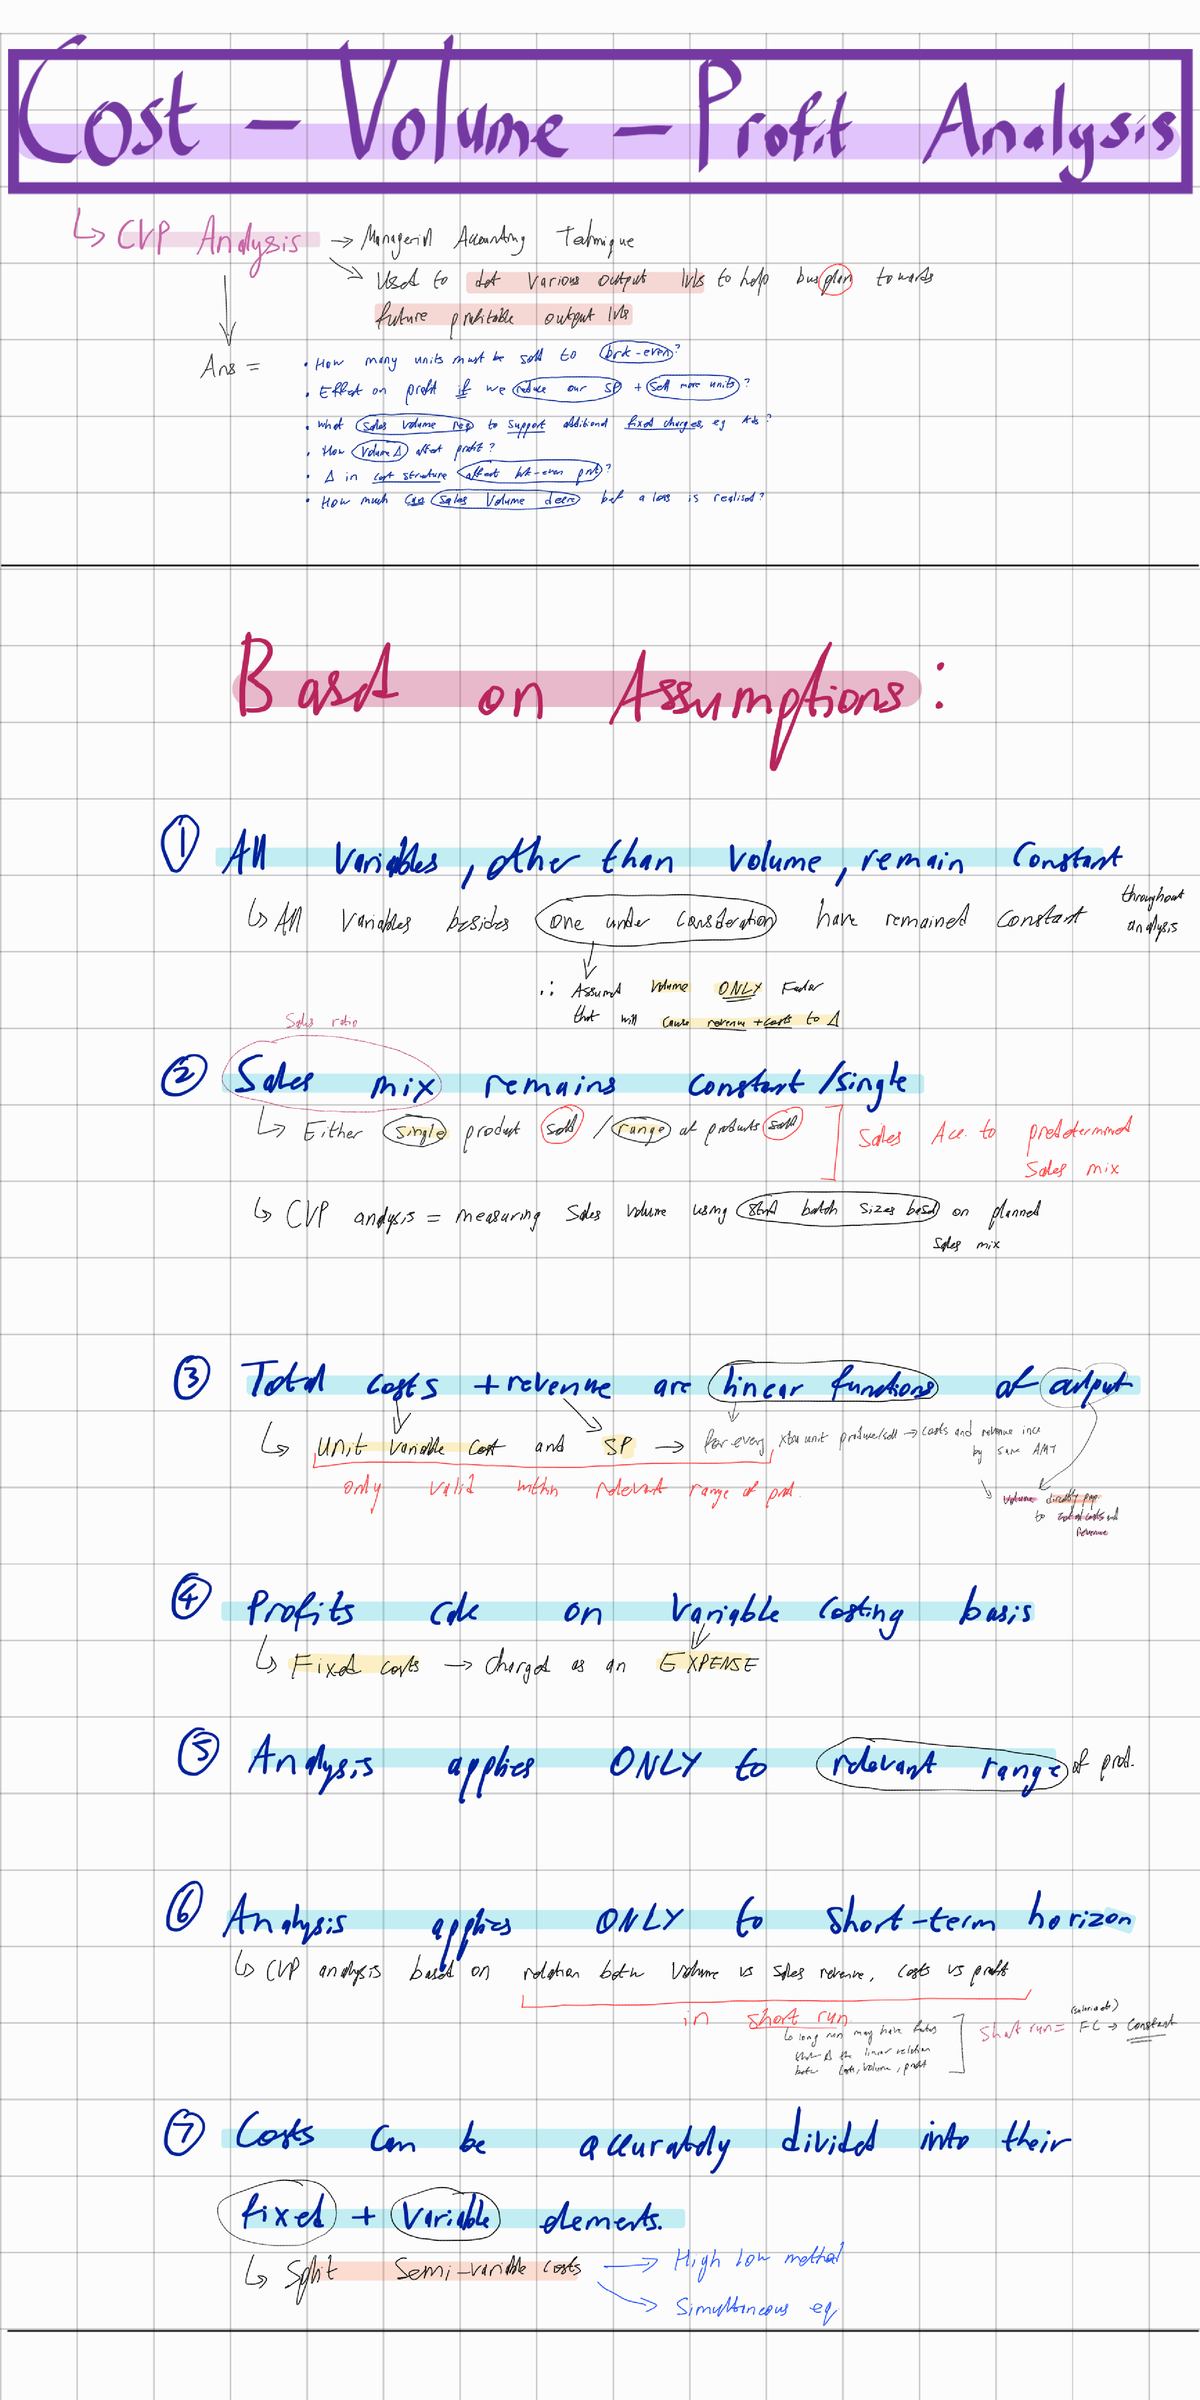 Cost - Volume - Profit Analysis
↳ CVP Analysis → Managerial Accounting Technique
→ Used to det various output lvls to help bus plan towards
future profitable output lvls
Ans =
• How many units must be sold to brk-even?
• Effect on profit if we reduce our SP + sell more units?
• What sales volume req to support additional fixed charges, eg Ads?
• How Volume Δ affect profit?
• Δ in cost structure affect brk-even pnt?
• How much can sales Volume decre bef a loss is realised?
Based on Assumptions:
① All Variables, other than Volume, remain Constant
↳ All Variables besides one under consideration have remained constant throughout
analysis
∴ Assumed Volume ONLY Factor
that will cause revenue + costs to Δ
Sales ratio
② Sales mix remains constant/single
↳ Either single product sold / range of products sold
Sales Acc. to predetermined
Sales mix
↳ CVP analysis = measuring Sales Volume using stnd batch sizes based on planned
Sales mix
③ Total costs + revenue are linear functions of output
↳ Unit variable cost and SP → For every xtra unit produce/sell → costs and revenue incr
by same AMT
only valid within relevant range of prod.
↘ Volume directly prop.
to total costs and
Revenue
④ Profits calc on Variable Costing basis
↳ Fixed costs → charged as an EXPENSE
⑤ Analysis applies ONLY to relevant range of prod.
⑥ Analysis applies ONLY to short-term horizon
↳ CVP analysis based on relation betw Volume vs sales revenue, costs vs profit
in short run
↳ long run may have factors
that Δ the linear relation
betw costs, volume, profit
Short run = FC → Constant
⑦ Costs can be accurately divided into their
fixed + Variable elements.
↳ Split Semi-variable costs → High low method
→ Simultaneous eq